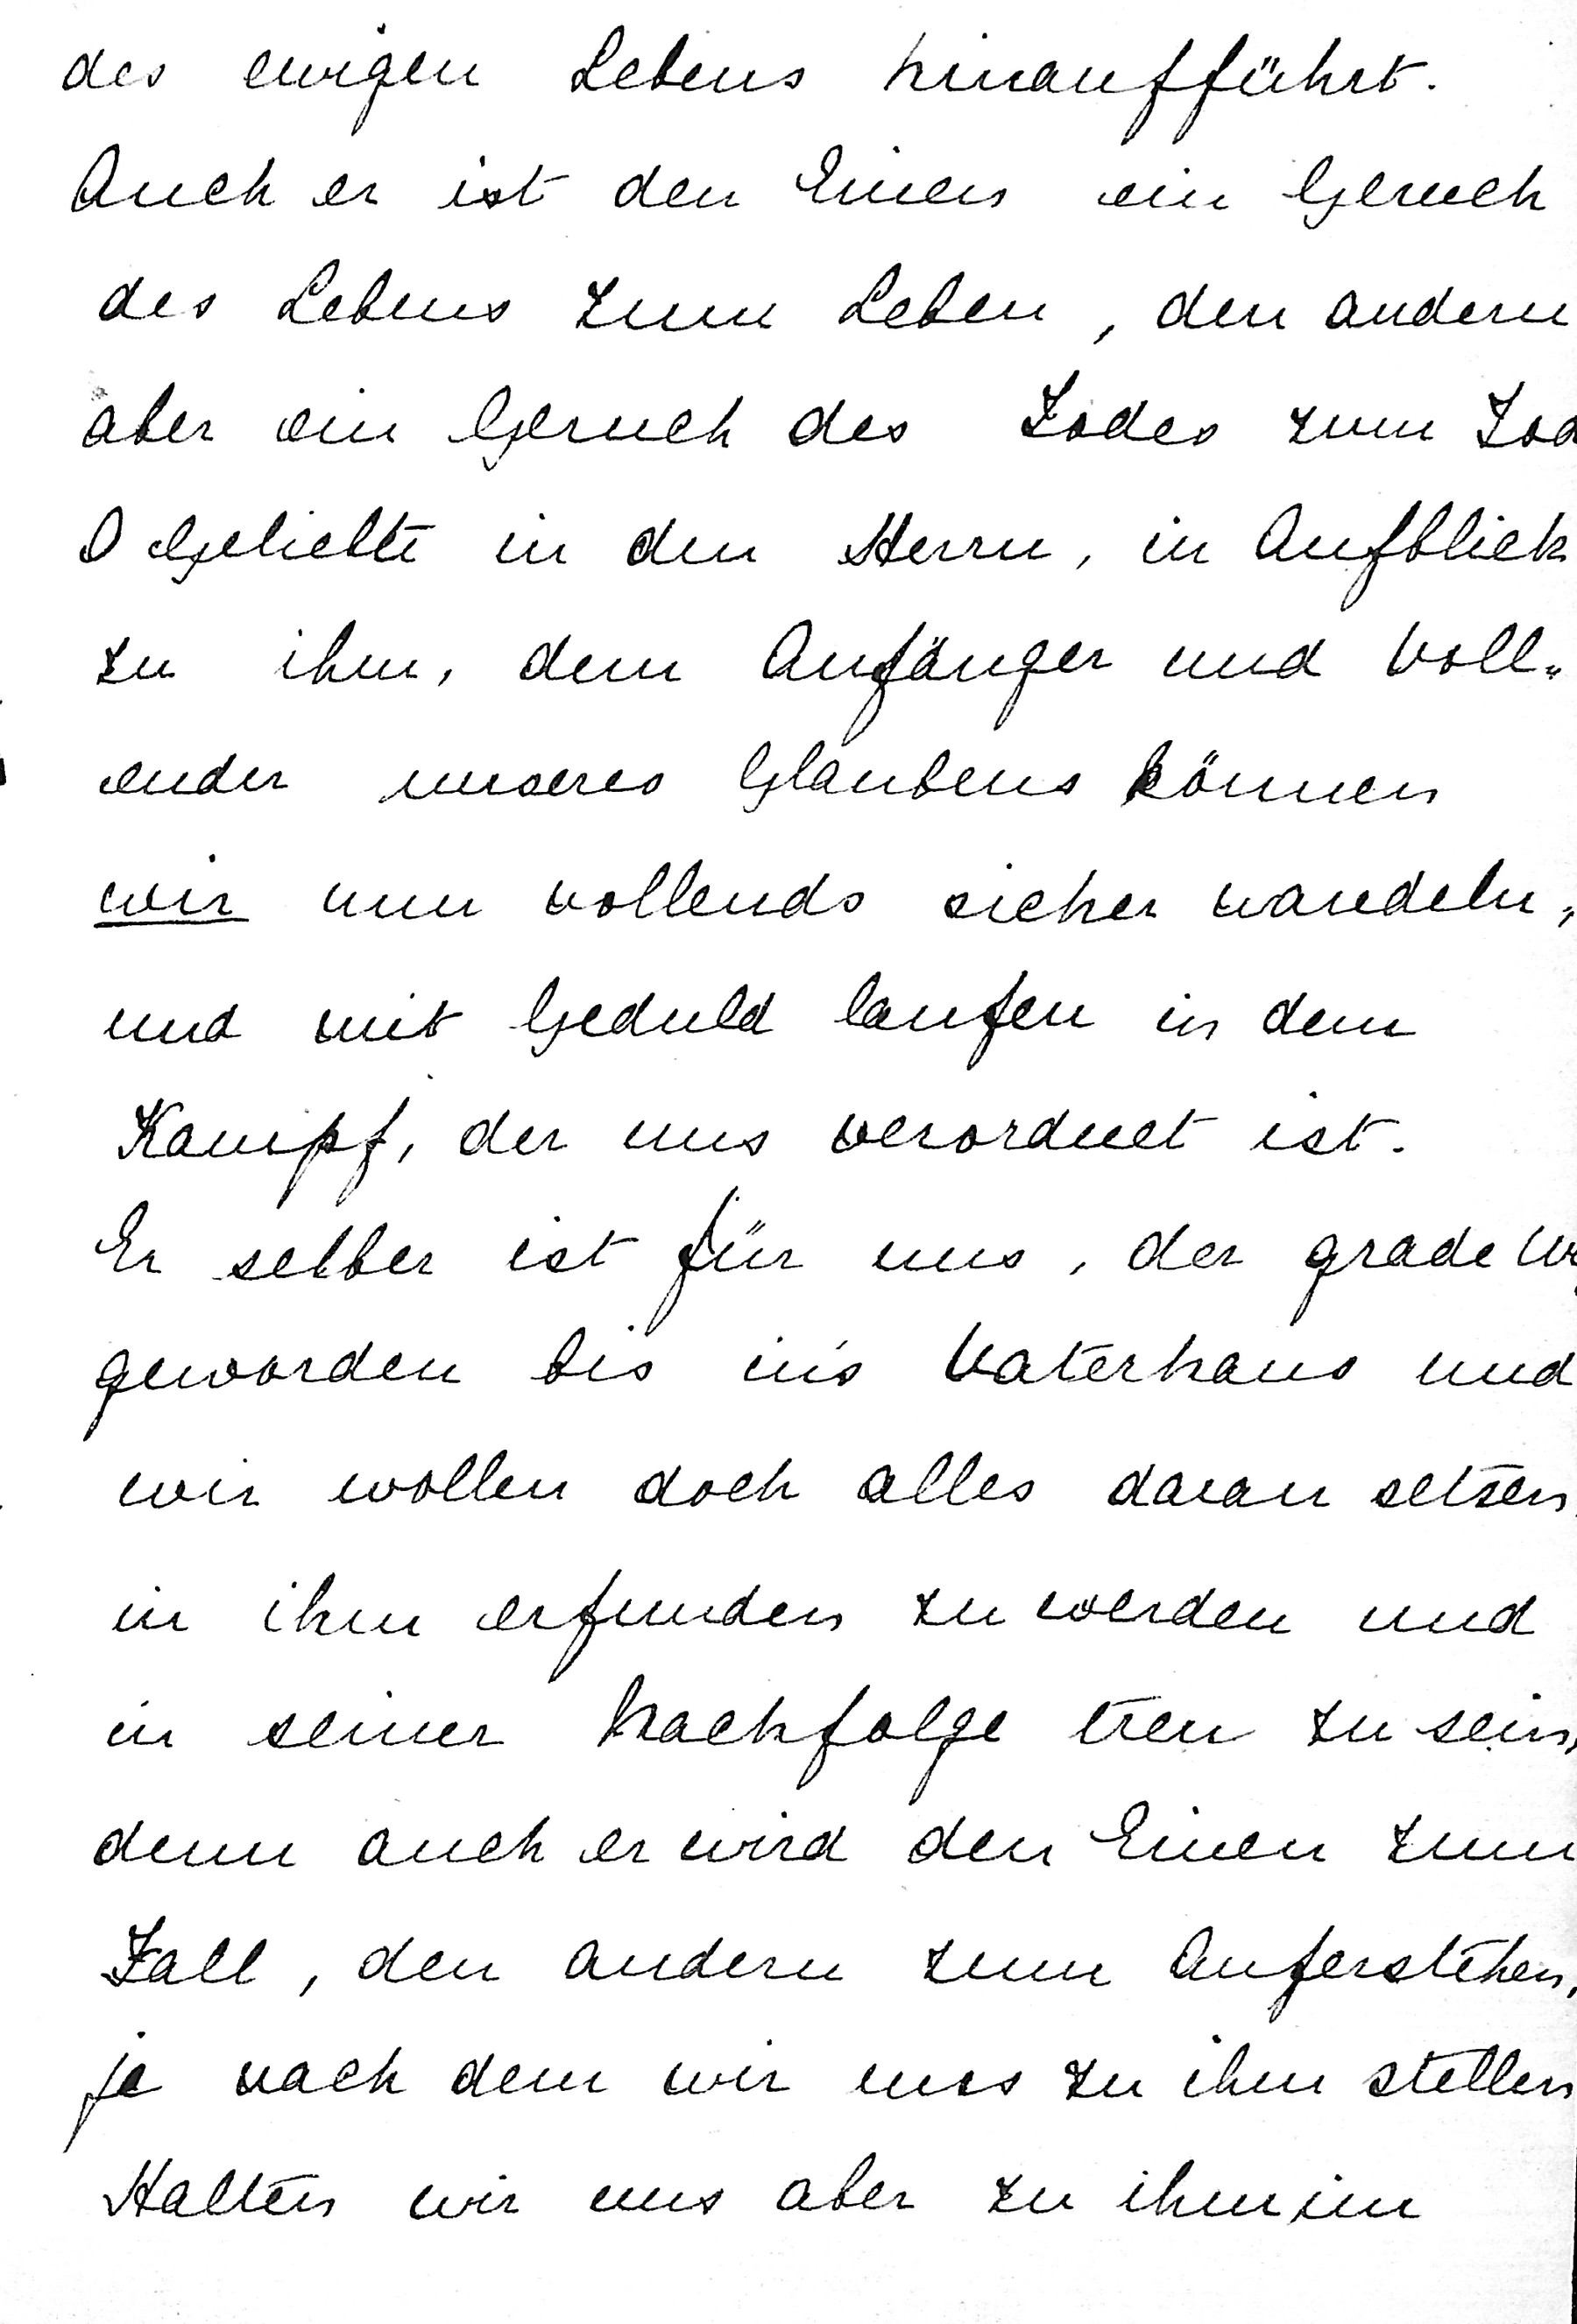 des ewigen Lebens hinaufführt.
Auch er ist den Einen ein Geruch
des Lebens zum Leben, den andern
aber ein Geruch des Todes zum Tod
O Geliebte in den Herrn, in Aufblick
zu ihm, dem Anfänger und Voll-
ender unseres Glaubens können
wir nun vollends sicher wandeln,
und mit Geduld laufen in dem
Kampf, der uns verordnet ist.
Er selber ist für uns, der grade
geworden bis in's Vaterhaus und
wir wollen doch alles daran setzen
in ihm erfunden zu werden und
in seiner Nachfolge treu zu sein,
denn auch er wird den Einen zum
Fall, den andern zum Auferstehen,
je nach dem wir uns zu ihm stellen
Halten wir uns aber zu ihm, im